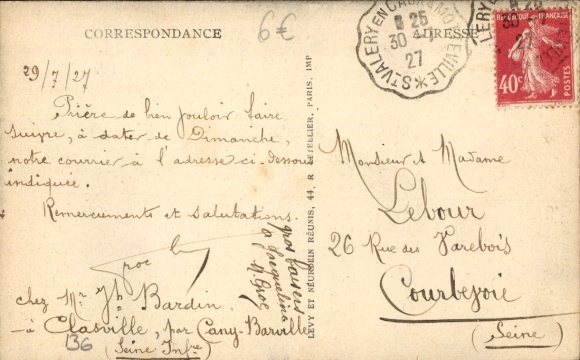 CORRESPONDANCE
6€
ADRESSE
29/7/27
Prière de bien vouloir faire
suivre, à dater de Dimanche,
notre courrier à l'adresse ci-dessous
indiquée.
Remerciements et salutations.
chez Mr Jh Bardin
à Clasville, par Cany-Barville
(Seine Infre)
136
gros baisers
à Jacqueline
LEVY ET NEURDEIN RÉUNIS, 44, R LETELLIER, PARIS, IMP
Sᵀ VALERY EN CAUX A MOTTEVILLE
8 25
30 -7
27
REPUBLIQUE FRANÇAISE
40c
Monsieur et Madame
Lebour
26 Rue des
Courbevoie
(Seine)